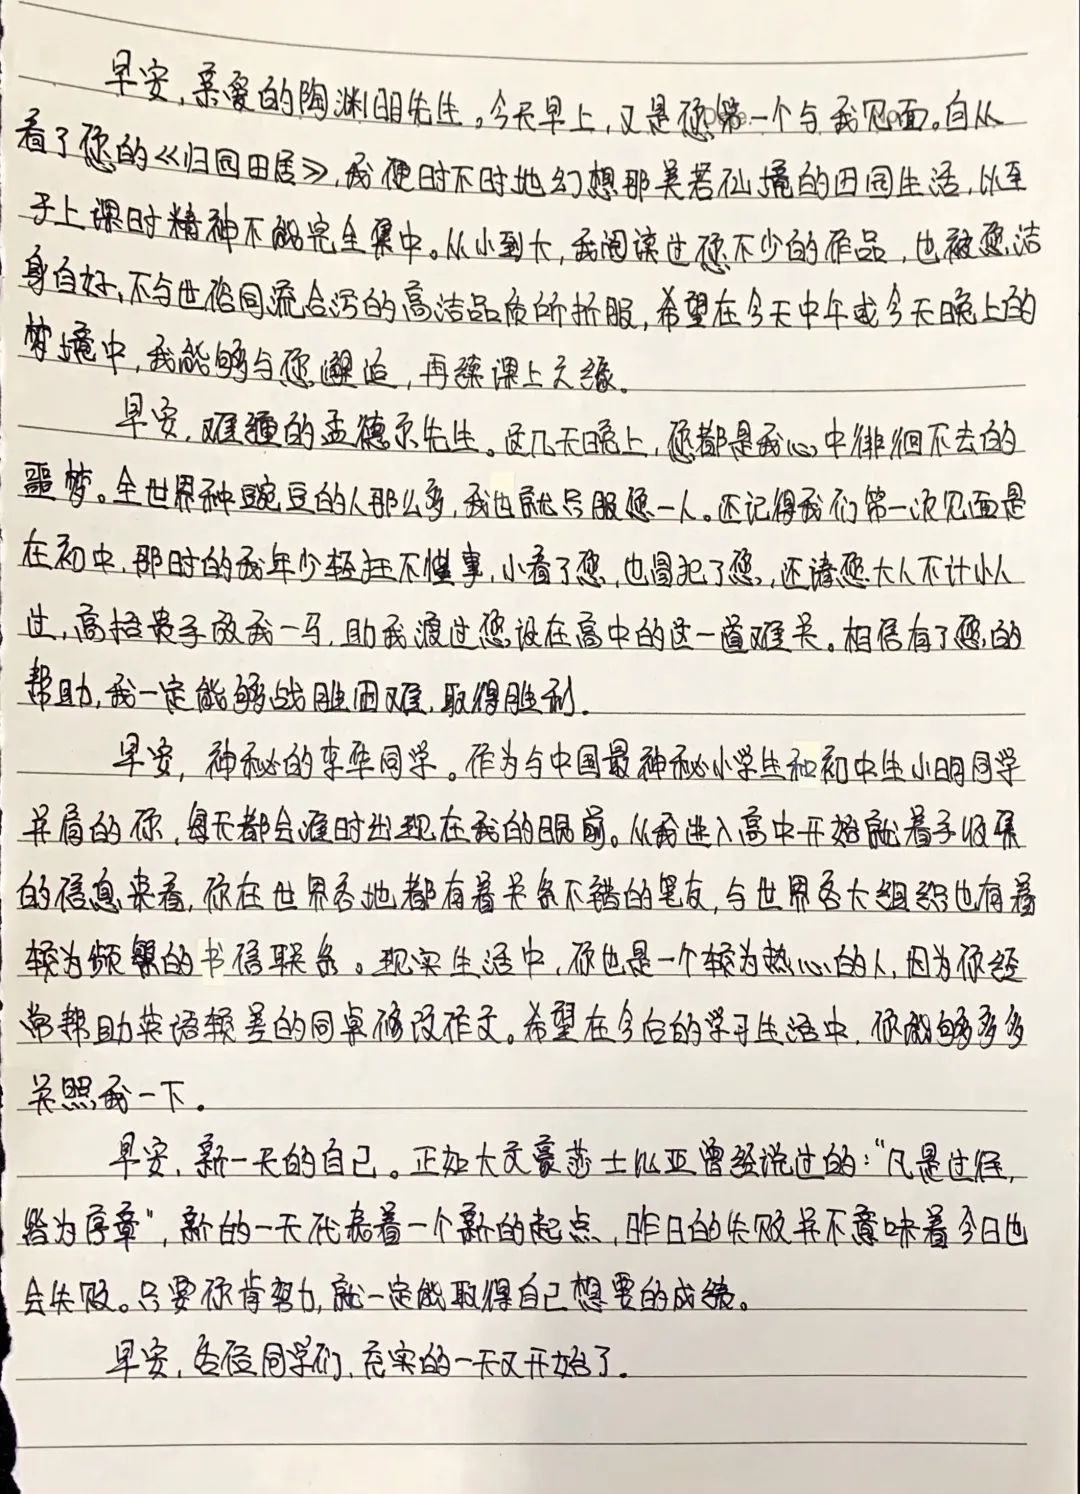 早安,亲爱的陶渊明先生。今天早上,又是您第一个与我见面。自从
看了您的《归园田居》,我便时不时地幻想那美若仙境的田园生活,以至
于上课时精神不能完全集中。从小到大,我阅读过您不少的作品,也被您洁
身自好、不与世俗同流合污的高洁品质所折服,希望在今天中午或今天晚上的
梦境中,我能够与您邂逅,再续课上之缘。
早安,难缠的孟德尔先生。这几天晚上,您都是我心中徘徊不去的
噩梦。全世界种豌豆的人那么多,我也就只服您一人。还记得我们第一次见面是
在初中,那时的我年少轻狂不懂事,小看了您,也冒犯了您,还请您大人不计小人
过,高抬贵手放我一马,助我渡过您设在高中的这一道难关。相信有了您的
帮助,我一定能够战胜困难,取得胜利。
早安,神秘的李华同学。作为与中国最神秘小学生和初中生小明同学
并肩的你,每天都会准时出现在我的眼前。从我进入高中开始就着手收集
的信息来看,你在世界各地都有着关系不错的笔友,与世界各大组织也有着
较为频繁的书信联系。现实生活中,你也是一个较为热心的人,因为你经
常帮助英语较差的同桌修改作文。希望在今后的学习生活中,你能够多多
关照我一下。
早安,新一天的自己。正如大文豪莎士比亚曾经说过的:“凡是过往,
皆为序章”,新的一天代表着一个新的起点,昨日的失败并不意味着今日也
会失败。只要你肯努力,就一定能取得自己想要的成绩。
早安,各位同学们,充实的一天又开始了。